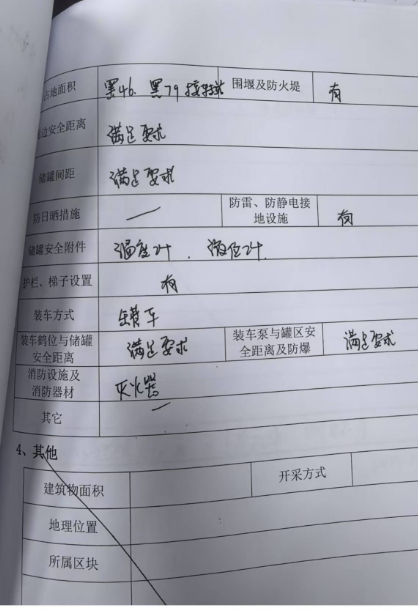 占地面积 黑46、黑79接转站 围堰及防火堤 有
周边安全距离 满足要求
储罐间距 满足要求
防日晒措施 — 防雷、防静电接地设施 有
储罐安全附件 温度计、液位计
护栏、梯子设置 有
装车方式 车
装车鹤位与储罐安全距离 满足要求 装车泵与罐区安全距离及防爆 满足要求
消防设施及消防器材 灭火器
其它 —
4、其他
建筑物面积 开采方式
地理位置
所属区块